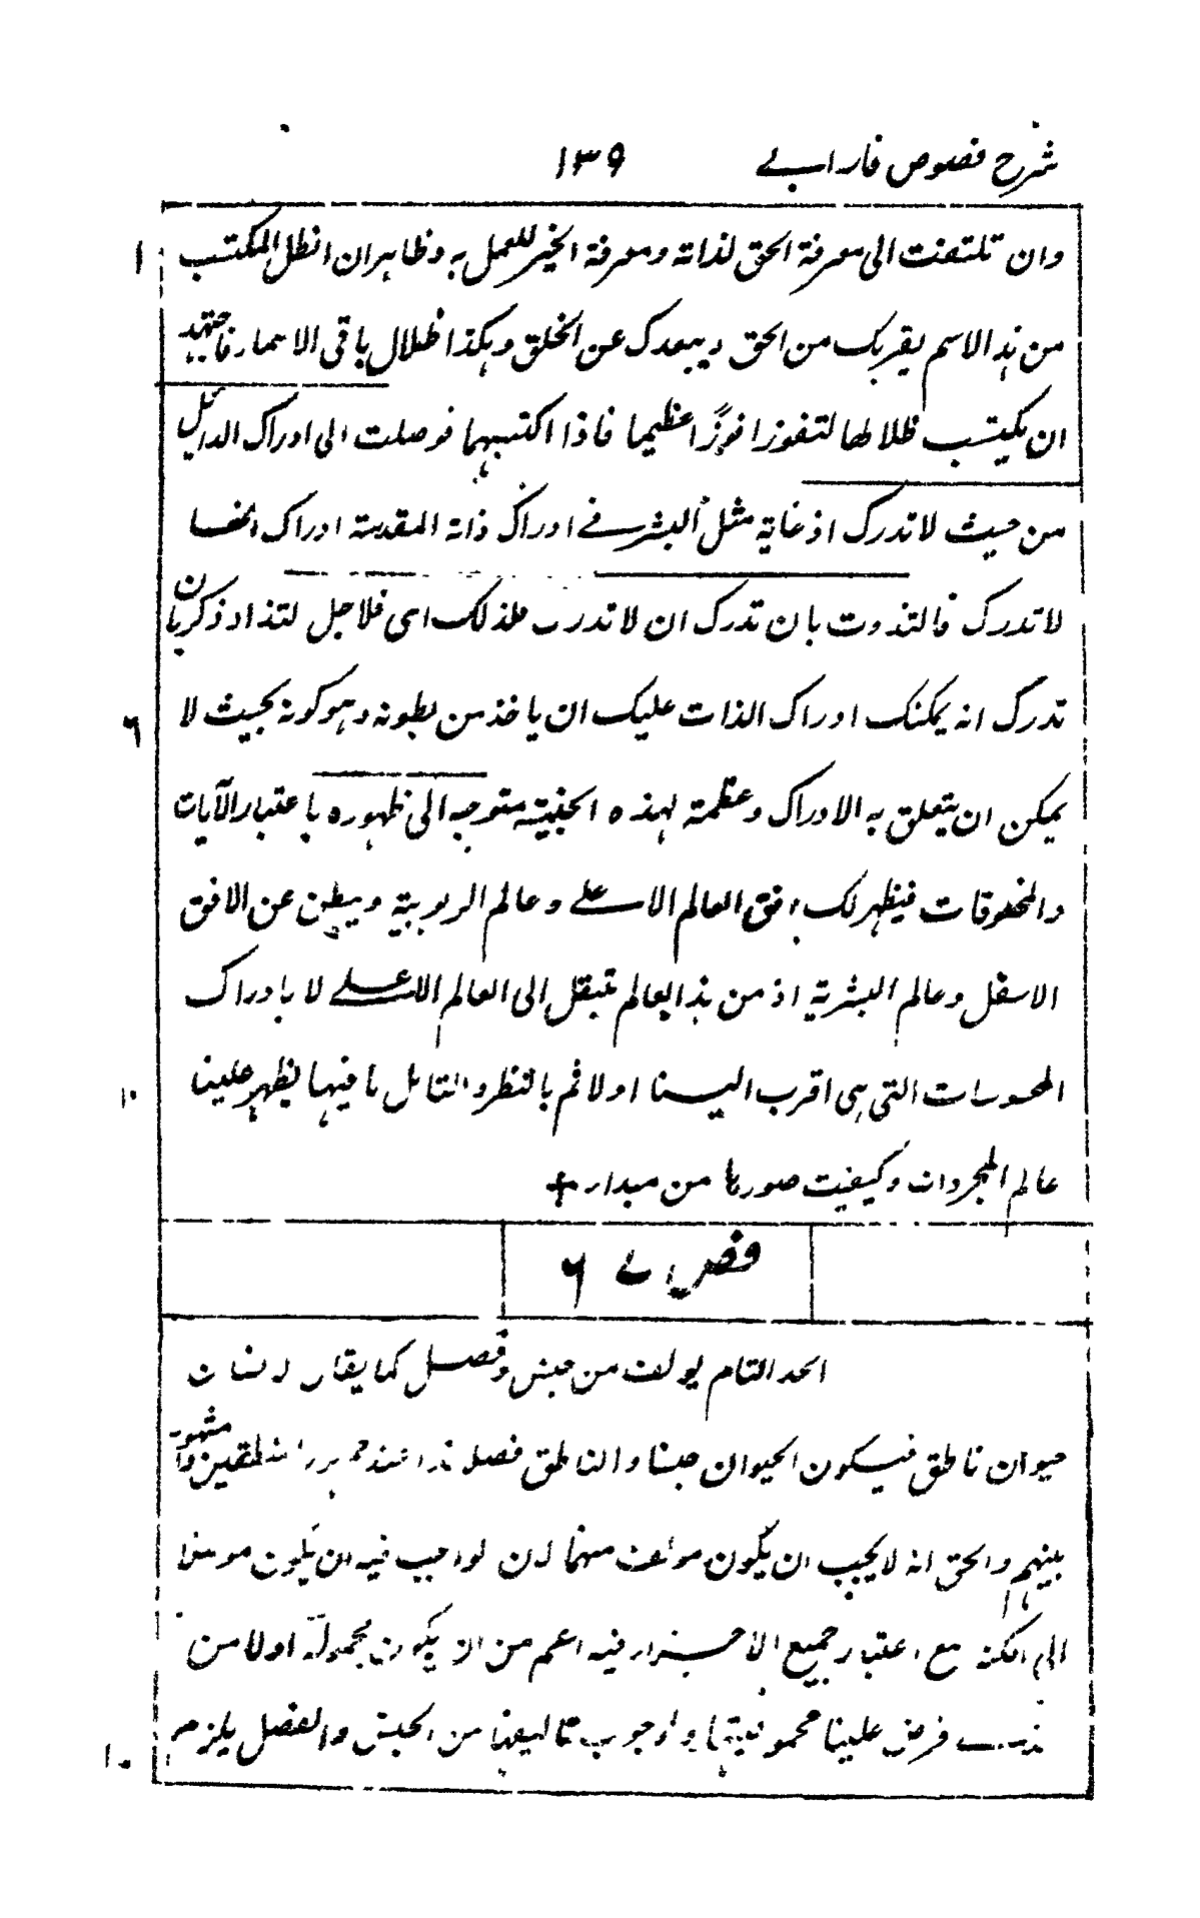 شرح فصوص فارابے ۱۳۹
وان تلتفت الی معرفة الحق لذاته ومعرفة الخیر للعمل به وظاہر ان الظل المکتسب ۱
من ہذا الاسم یقربک من الحق ویبعدک عن الخلق وہکذا ظلال باقی الاسماء فاجتہد
ان یکتسب ظلالھا لتفوز فوزًا عظیما فاذا اکتسبہما فوصلت الی ادراک الذات بل
من حیث لا تدرک اذ غایة مثل البشر فے ادراک ذاته المقدسة ادراک انھا
لا تدرک فالتذوت بان تدرک ان لا تدرک فلذلک ای فلاجل لتذاذک بان
تدرک انه یمکنک ادراک الذات علیک ان یاخذ من بطونه وہو کونه بحیث لا ۶
یمکن ان یتعلق به الادراک وعظمة لہذه الحیثیة متوجه الی ظہوره باعتبار الآیات
والمخلوقات فیظہر لک افق العالم الاعلے وعالم الربوبیة ویبطن عن الافق
الاسفل وعالم البشریة اذ من ہذا العالم تنتقل الی العالم الاعلے لا بادراک
المحسوسات التی ہی اقرب الینا اولا ثم بالنظر والتامل ما فیہا یظہر علینا ۱۰
عالم المجردات وکیفیت صورہا من مبداء +
فص ے ۶
الحد التام یولف من جنس وفصل کما یقال الانسان
حیوان ناطق فیکون الحیوان جنسا والناطق فصلا ہذا عند جمہور المنطقین والمشہور
بینہم والحق انه لا یجب ان یکون مولفا منہما لان الواجب فیه ان یکون موصلا
الی الکنه مع اعتبار جمیع الاجزاء فیه اعم من ان یکون محمولة اولا من
فرض علینا محمولیتہا ووجوب تالیفہا من الجنس والفصل یلزم ۱۵